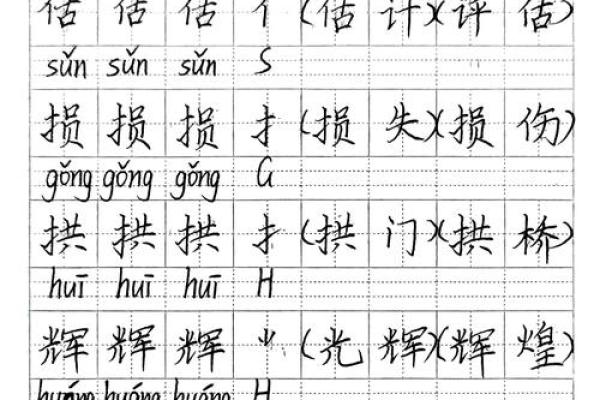 估 估 估 亻 (估 计)(评 估)
sǔn sǔn sǔn S
损 损 损 扌 (损 失)(损 伤)
gǒng gǒng gǒng G
拱 拱 拱 扌 (拱 门)(拱 桥)
huī huī huī H
辉 辉 辉 ⺌ (光 辉)(辉 煌)
huáng huáng huáng H